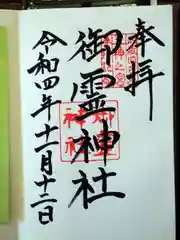 奉拝
御霊神社
令和四年十一月十二日